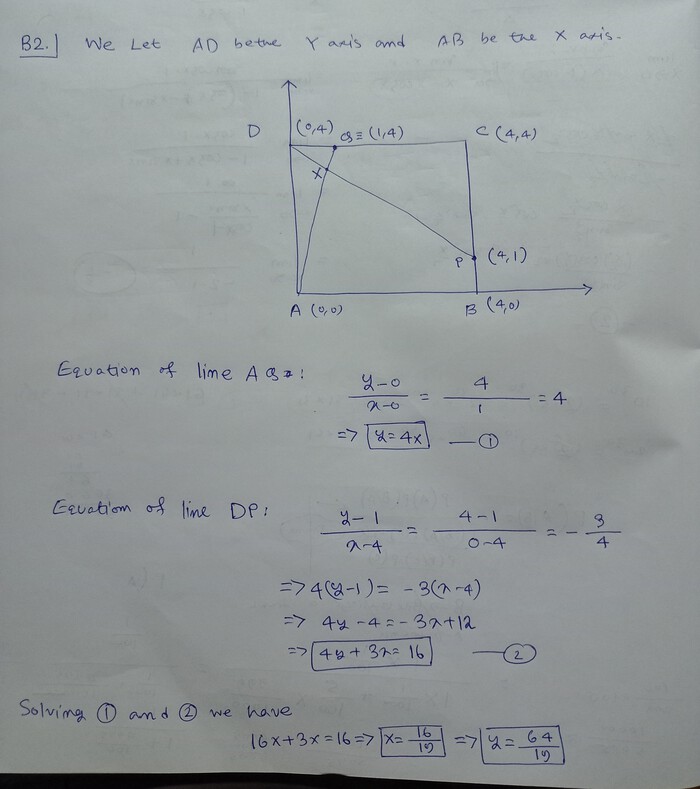 B2.] We Let AD be the Y axis and AB be the X axis.
D (0,4) Q≡(1,4) C (4,4)
X
P (4,1)
A (0,0) B (4,0)
Equation of line AQ:
y-0/x-0 = 4/1 = 4
=> y=4x —①
Equation of line DP:
y-1/x-4 = 4-1/0-4 = -3/4
=> 4(y-1) = -3(x-4)
=> 4y-4 = -3x+12
=> 4y+3x = 16 —②
Solving ① and ② we have
16x+3x=16 => x=16/19 => y=64/19